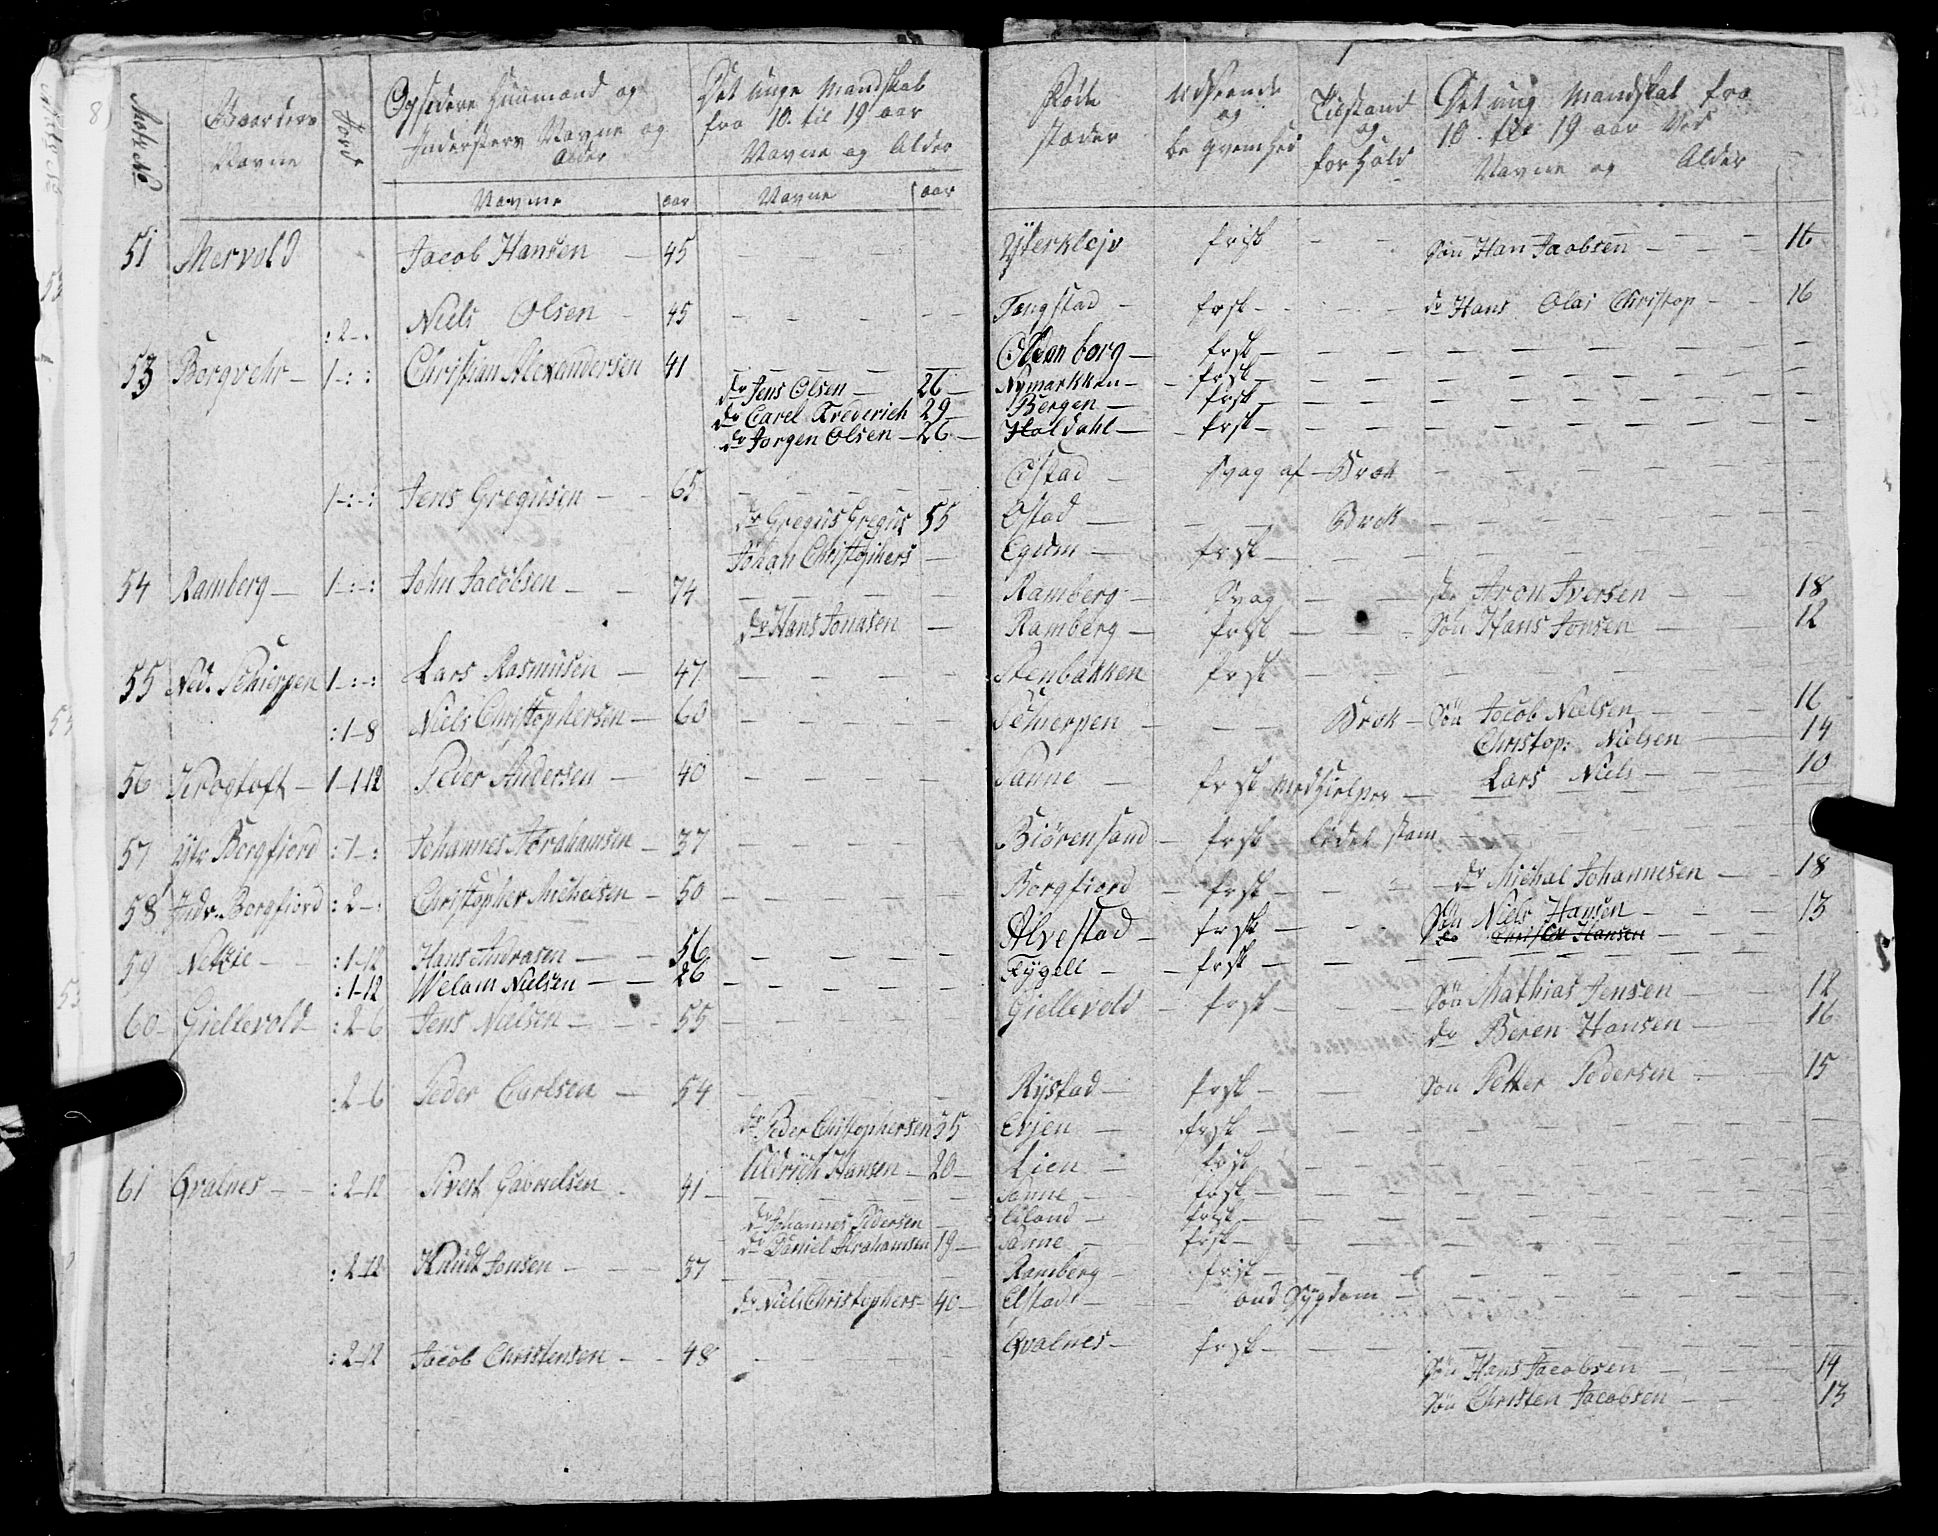 8
Gaardens Navne
Jord
Opsidere Huusmænd og
Indersters Navne og
Alder
Det unge Mandskab
fra 10. til 19 aar
Navne og Alder
Føde
stæder
Udseende
og
be qvemhed
Tilstand
og
forhold
Det ung Mandskab fra
10. til 19 aar Ved
Navne og Alder
Navne aar Navne aar
51 Mervold Jacob Hansen 45 Ÿterklejv frisk Søn Han Jacobsen 16
:2-: Niels Olsen 45 Tengstad frsk do Hans Olai Christop 16
53 Borgvehr 1-:-: Christian Alexandersen 41 Olsenborg frsk
do Jens Olsen 26 Nymarkken frsk
do Carel Frederich 29 Bergen frsk
do Jorgen Olsen 26 Holdahl frsk
1-:-: Jens Gregusen 65 Estad Svag af Brok
do Gregus Gregus 55 Ostad Brok
Johan Christophers Egum frsk
54 Ramberg 1-:-: John Jacobsen 74 Ramberg Svag Aron Iversen 18
do Hans Jonasen Ramberg frsk Søn Hans Jonsen 12
55 Ned. Schierpen 1-:-: Lars Rasmusen 47 Stenbakken frsk
:1-8 Niels Christophersen 60 Schierpen Brok Søn Jacob Nielsen 16
Christop: Nielsen 14
56 Kroetoft 1-1-12 Peder Andersen 40 Sanne frsk Medhielper Lars Niels 10
57 Ÿtr Borgfiord :1-: Johannes Abrahamsen 37 Biörensand frsk
58 Indr. Borgfiord :2-: Christopher Michelsen 50 Borgfiord frsk do Michal Johannesen 18
Alvestad frsk Søn Niels Hansen 13
do Christen Hansen
59 :1-12 Hans Andrasen 56 Rygell frsk
:1-12 Welam Nielsen 26
60 Giellevold :2-6 Jens Nielsen 55 Giellevold frsk Søn Mathias Jensen 12
do Beren Hansen 16
:2-6 Peder Carlsen 54 Rystad frsk Søn Petter Pedersen 15
do Peder Christophersen 35 Evjen frsk
Uldrich Hansen 20 Lien frsk
61 Qvalnes :2-12 Sivert Gabrielsen 41 Sanne frsk
do Johannes Pedersen Eiland frsk
do Daniel Abrahamsen 19 Sanne frsk
:2-12 Knudt Jonsen 37 Ramberg frisk
do Niels Christophers 40 Elstad ond Sygdom
:2-12 Jacob Christensen 48 Qvalnes frsk
Søn Hans Jacobsen 14
Søn Christen Jacobsen 13